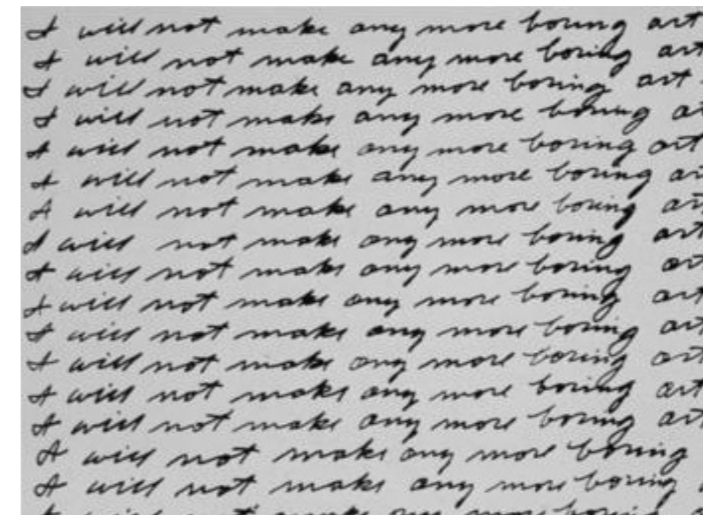 I will not make any more boring art
I will not make any more boring art
I will not make any more boring art
I will not make any more boring ar
I will not make any more boring art
I will not make any more boring ar
I will not make any more boring art
I will not make any more boring art
I will not make any more boring art
I will not make any more boring art
I will not make any more boring art
I will not make any more boring art
I will not make any more boring art
I will not make any more boring art
I will not make any more boring
I will not make any more boring
I will not make any more boring